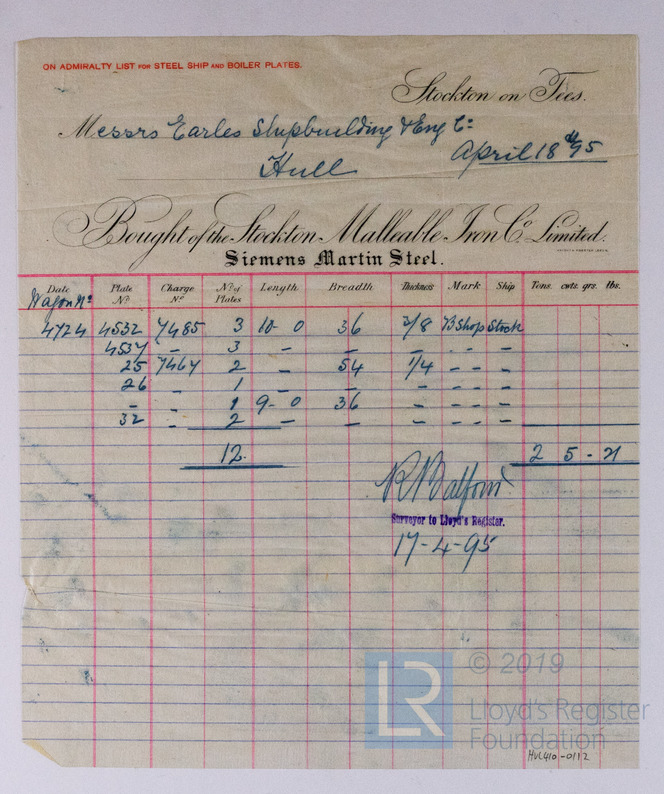 ON ADMIRALTY LIST FOR STEEL SHIP AND BOILER PLATES.
Stockton on Tees.
Messrs Earles Shipbuilding & Eng Co
Hull
April 18th 95
Bought of the Stockton Malleable Iron Co. Limited.
Siemens Martin Steel.
Date Plate No Charge No No of Plates Length Breadth Thickness Mark Ship Tons. cwts. qrs. lbs.
Wagon No
4724 4532 7485 3 10- 0 36 3/8 B Shop Stock
4534 - 3 - - - - - -
25 7464 2 - 54 1/4 - - -
26 - 1 - - - - - -
- - 1 9- 0 36 - - - -
32 - 2 - - - - - -
12. 2 5 - 21
R Balfour
Surveyor to Lloyd's Register.
17-4-95
LR
© 2019
Lloyd's Register
Foundation
HUL410-0112